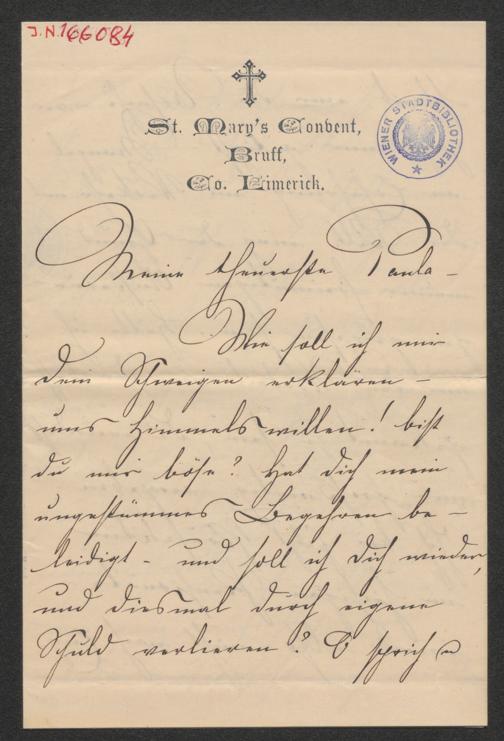 J.N.166084
St. Mary's Convent,
Bruff,
Co. Limerick.
WIENER STADTBIBLIOTHEK
Meine theuerste Paula –
Wie soll ich mir
Dein Schweigen erklären –
ums Himmels willen! bist
du mir böse? Hat Dich mein
ungestümmes Begehren be –
leidigt – und soll ich Dich wieder,
und diesmal durch eigene
Schuld verlieren? O sprich